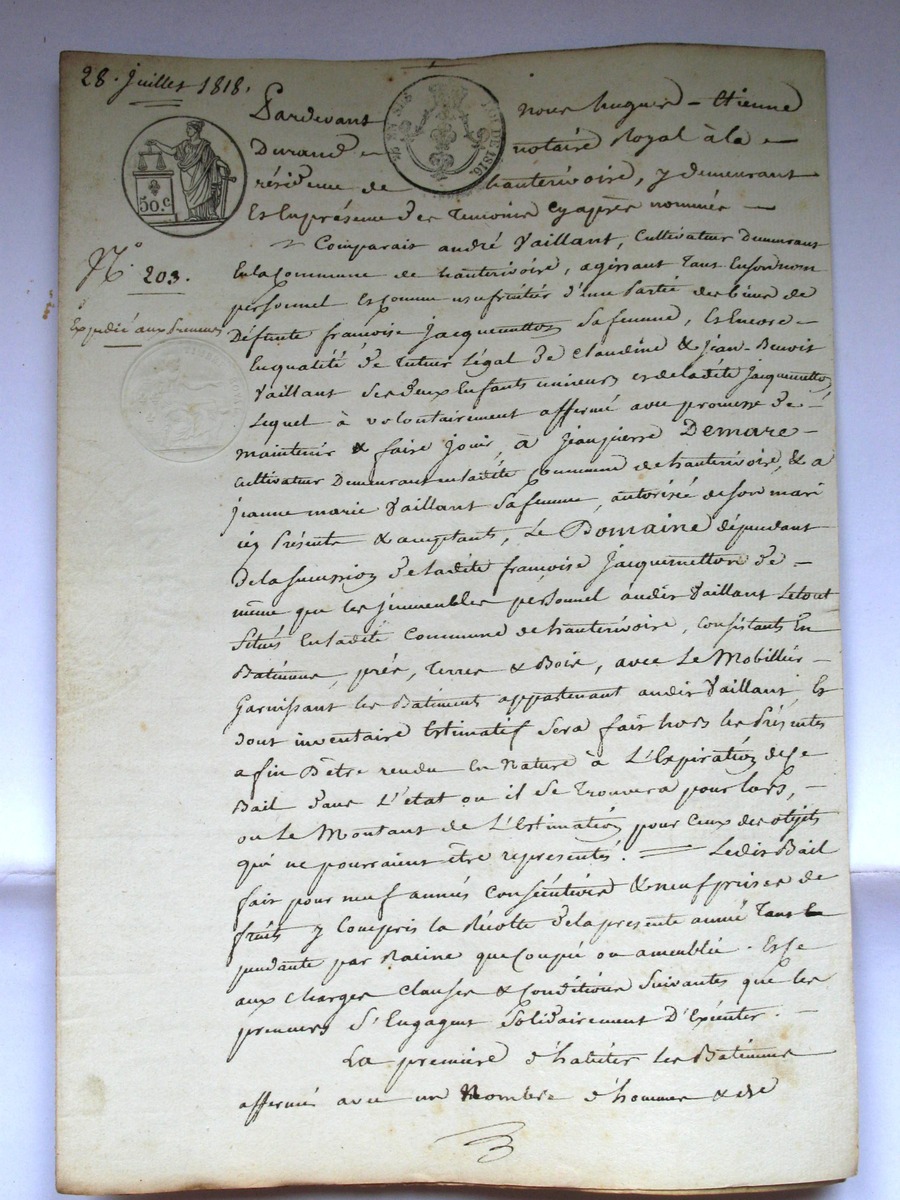 28. Juillet 1818.
Pardevant nous hugues - Etienne
Durand notaire Royal à la
résidence de hauterivoire, y demeurant
Et En présence des Temoins Cy après nommés —
Comparait andré Vaillant, Cultivateur Demeurant
En la Commune de hauterivoire, agissant Tant En son nom
personnel Et Comme usufruitier d'une Partie des biens de
Défunte françoise Jacquemetton Sa femme, Et Encore -
En qualité de Tuteur Légal de Claudine & Jean-Benoit
Vaillant Ses deux Enfants mineurs et de ladite Jacquemetton,
Lequel à volontairement affermé avec promesse de -
maintenir & faire Jouir, à Jean pierre Demare -
Cultivateur Demeurant en ladite Commune de hauterivoire, & a
Jeanne marie Vaillant Sa femme, autorisée de Son mari
icy Présents & acceptants, Le Domaine dépendant
de la succession de ladite françoise Jacquemetton de -
même que les jmmeubles personnel audit Vaillant Le tout
Situés En ladite Commune de hauterivoire, Consistants En
Batiments, prés, Terres & Bois, avec Le Mobilier -
Garnissant les Batiments appartenant audit Vaillant Et
dont inventaire Estimatif Sera fait hors les Présentes
afin D'être rendu En Nature à L'Expiration de Ce
Bail dans L'état ou il Se Trouvera pour lors, -
ou Le Montant de L'Estimation pour Ceux des objets
qui ne pourraient être représentés. — Ledit Bail
fait pour neuf années Consécutives & neuf prises de
fruits y Compris la Récolte de la presente année Tant
pendante par Racine que Coupée ou ameublie. Et Ce
aux Charges Clauses & Conditions Suivantes que les
preneurs S'Engagent Solidairement D'Exécuter. -
La premiere d'habiter les Batiments
affermés avec un Nombre d'hommes & de
50.c
N.° 203.
Expédié aux preneurs